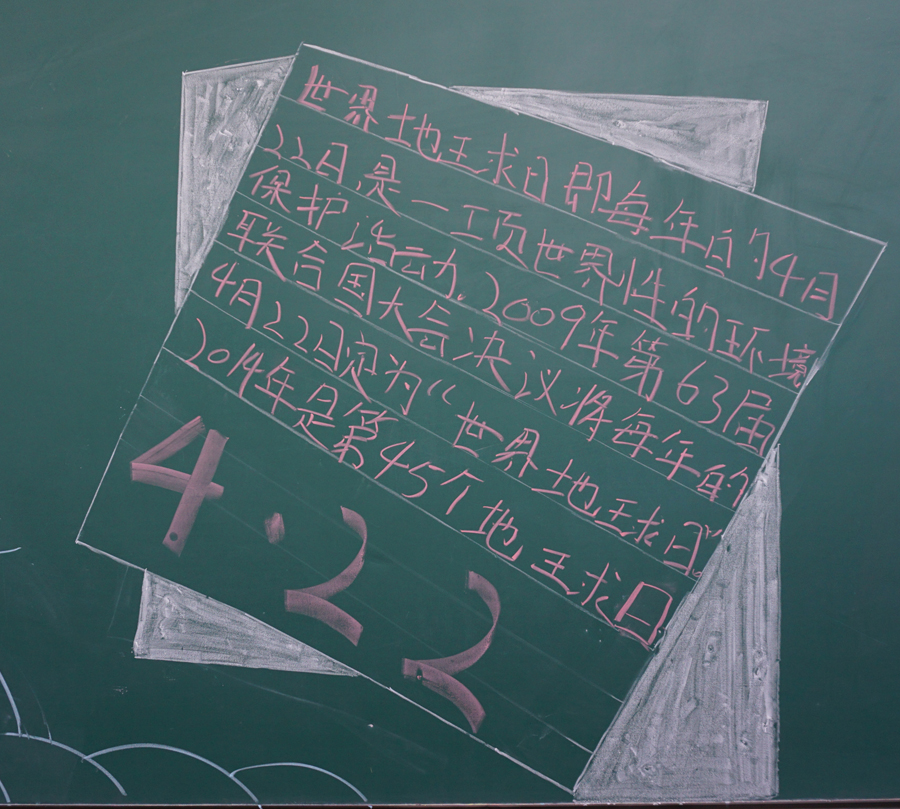 世界地球日即每年的4月
22日,是一项世界性的环境
保护活动.2009年第63届
联合国大会决议将每年的
4月22日定为“世界地球日”
2014年是第45个地球日
4·22